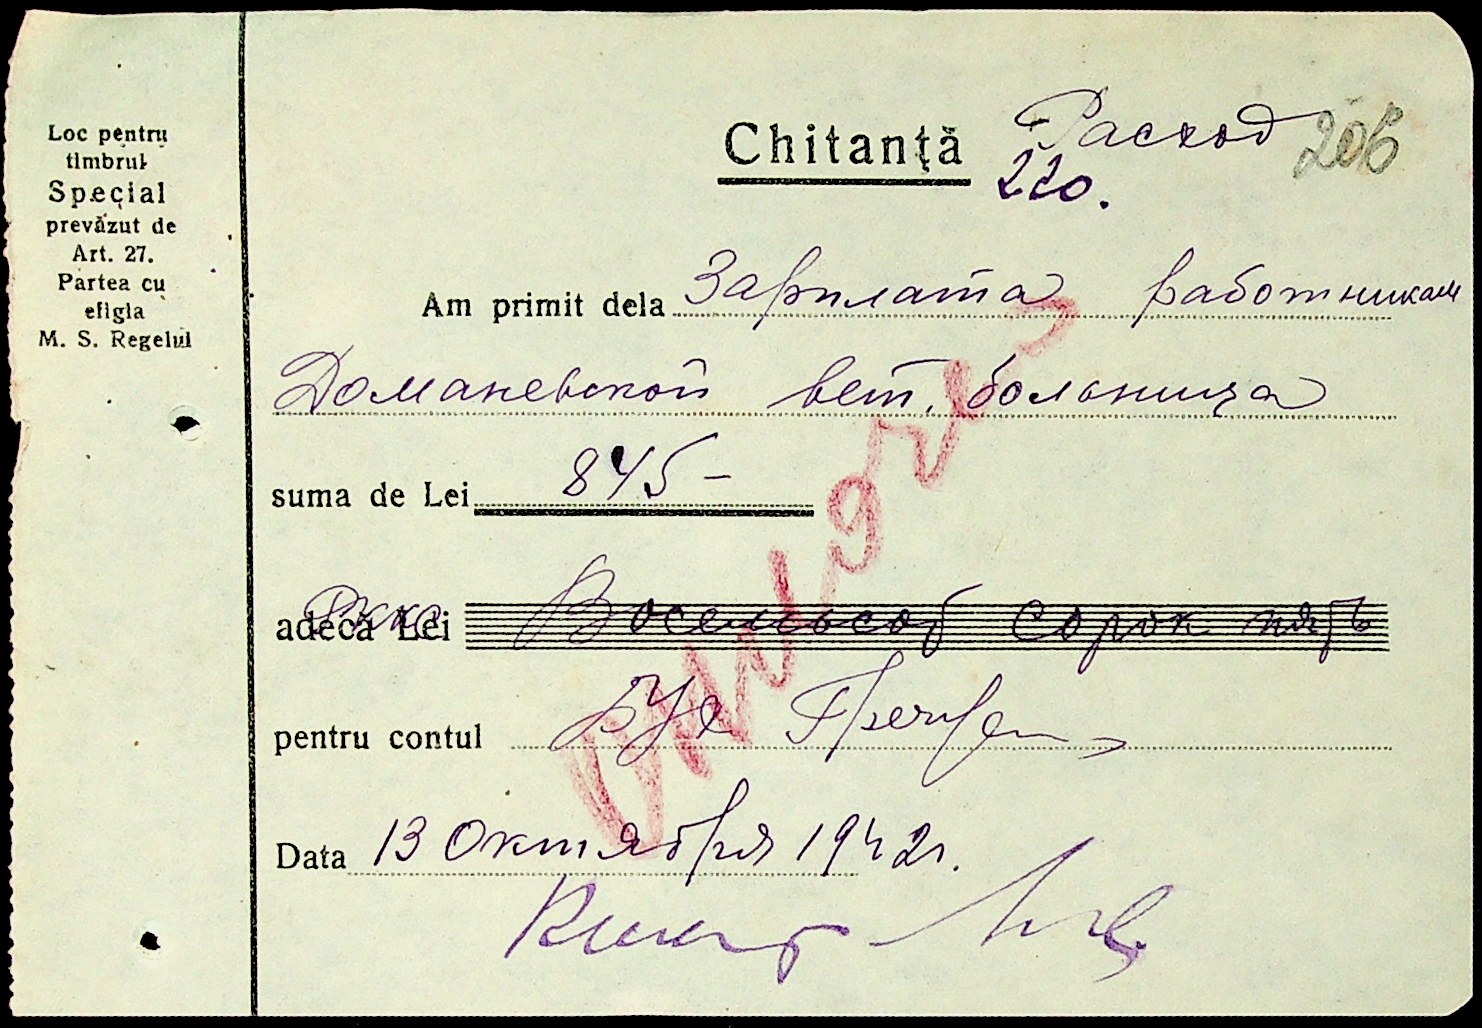 Loc pentru
timbrul
Special
prevăzut de
Art. 27.
Partea cu
efigia
M. S. Regelui
Chitanță Расход 206
220.
Am primit dela Зарплата работникам
Доманевской вет. больница
suma de Lei 845-
adecă Lei Восемьсот сорок пять
pentru contul
Data 13 Октября 1942 г.